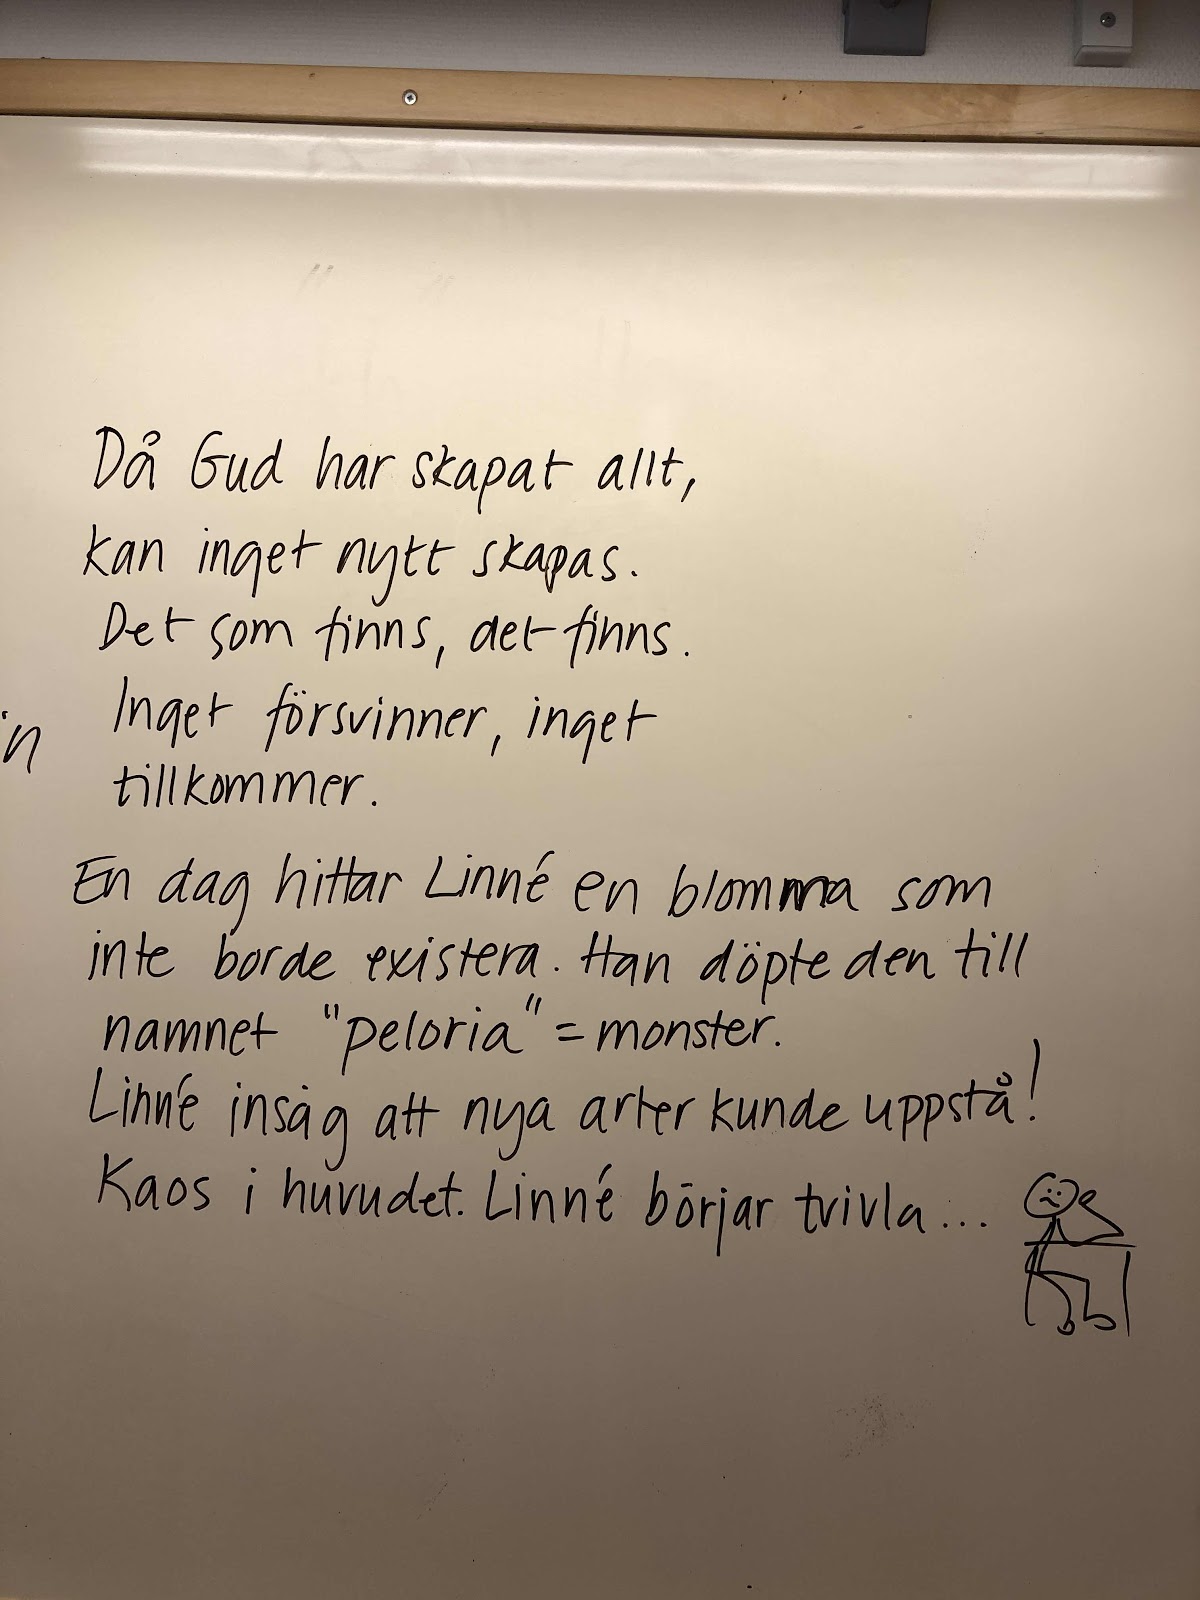 Då Gud har skapat allt,
kan inget nytt skapas.
Det som finns, det finns.
Inget försvinner, inget
tillkommer.
En dag hittar Linné en blomma som
inte borde existera. Han döpte den till
namnet "peloria" = monster.
Linné insåg att nya arter kunde uppstå!
Kaos i huvudet. Linné börjar tvivla...